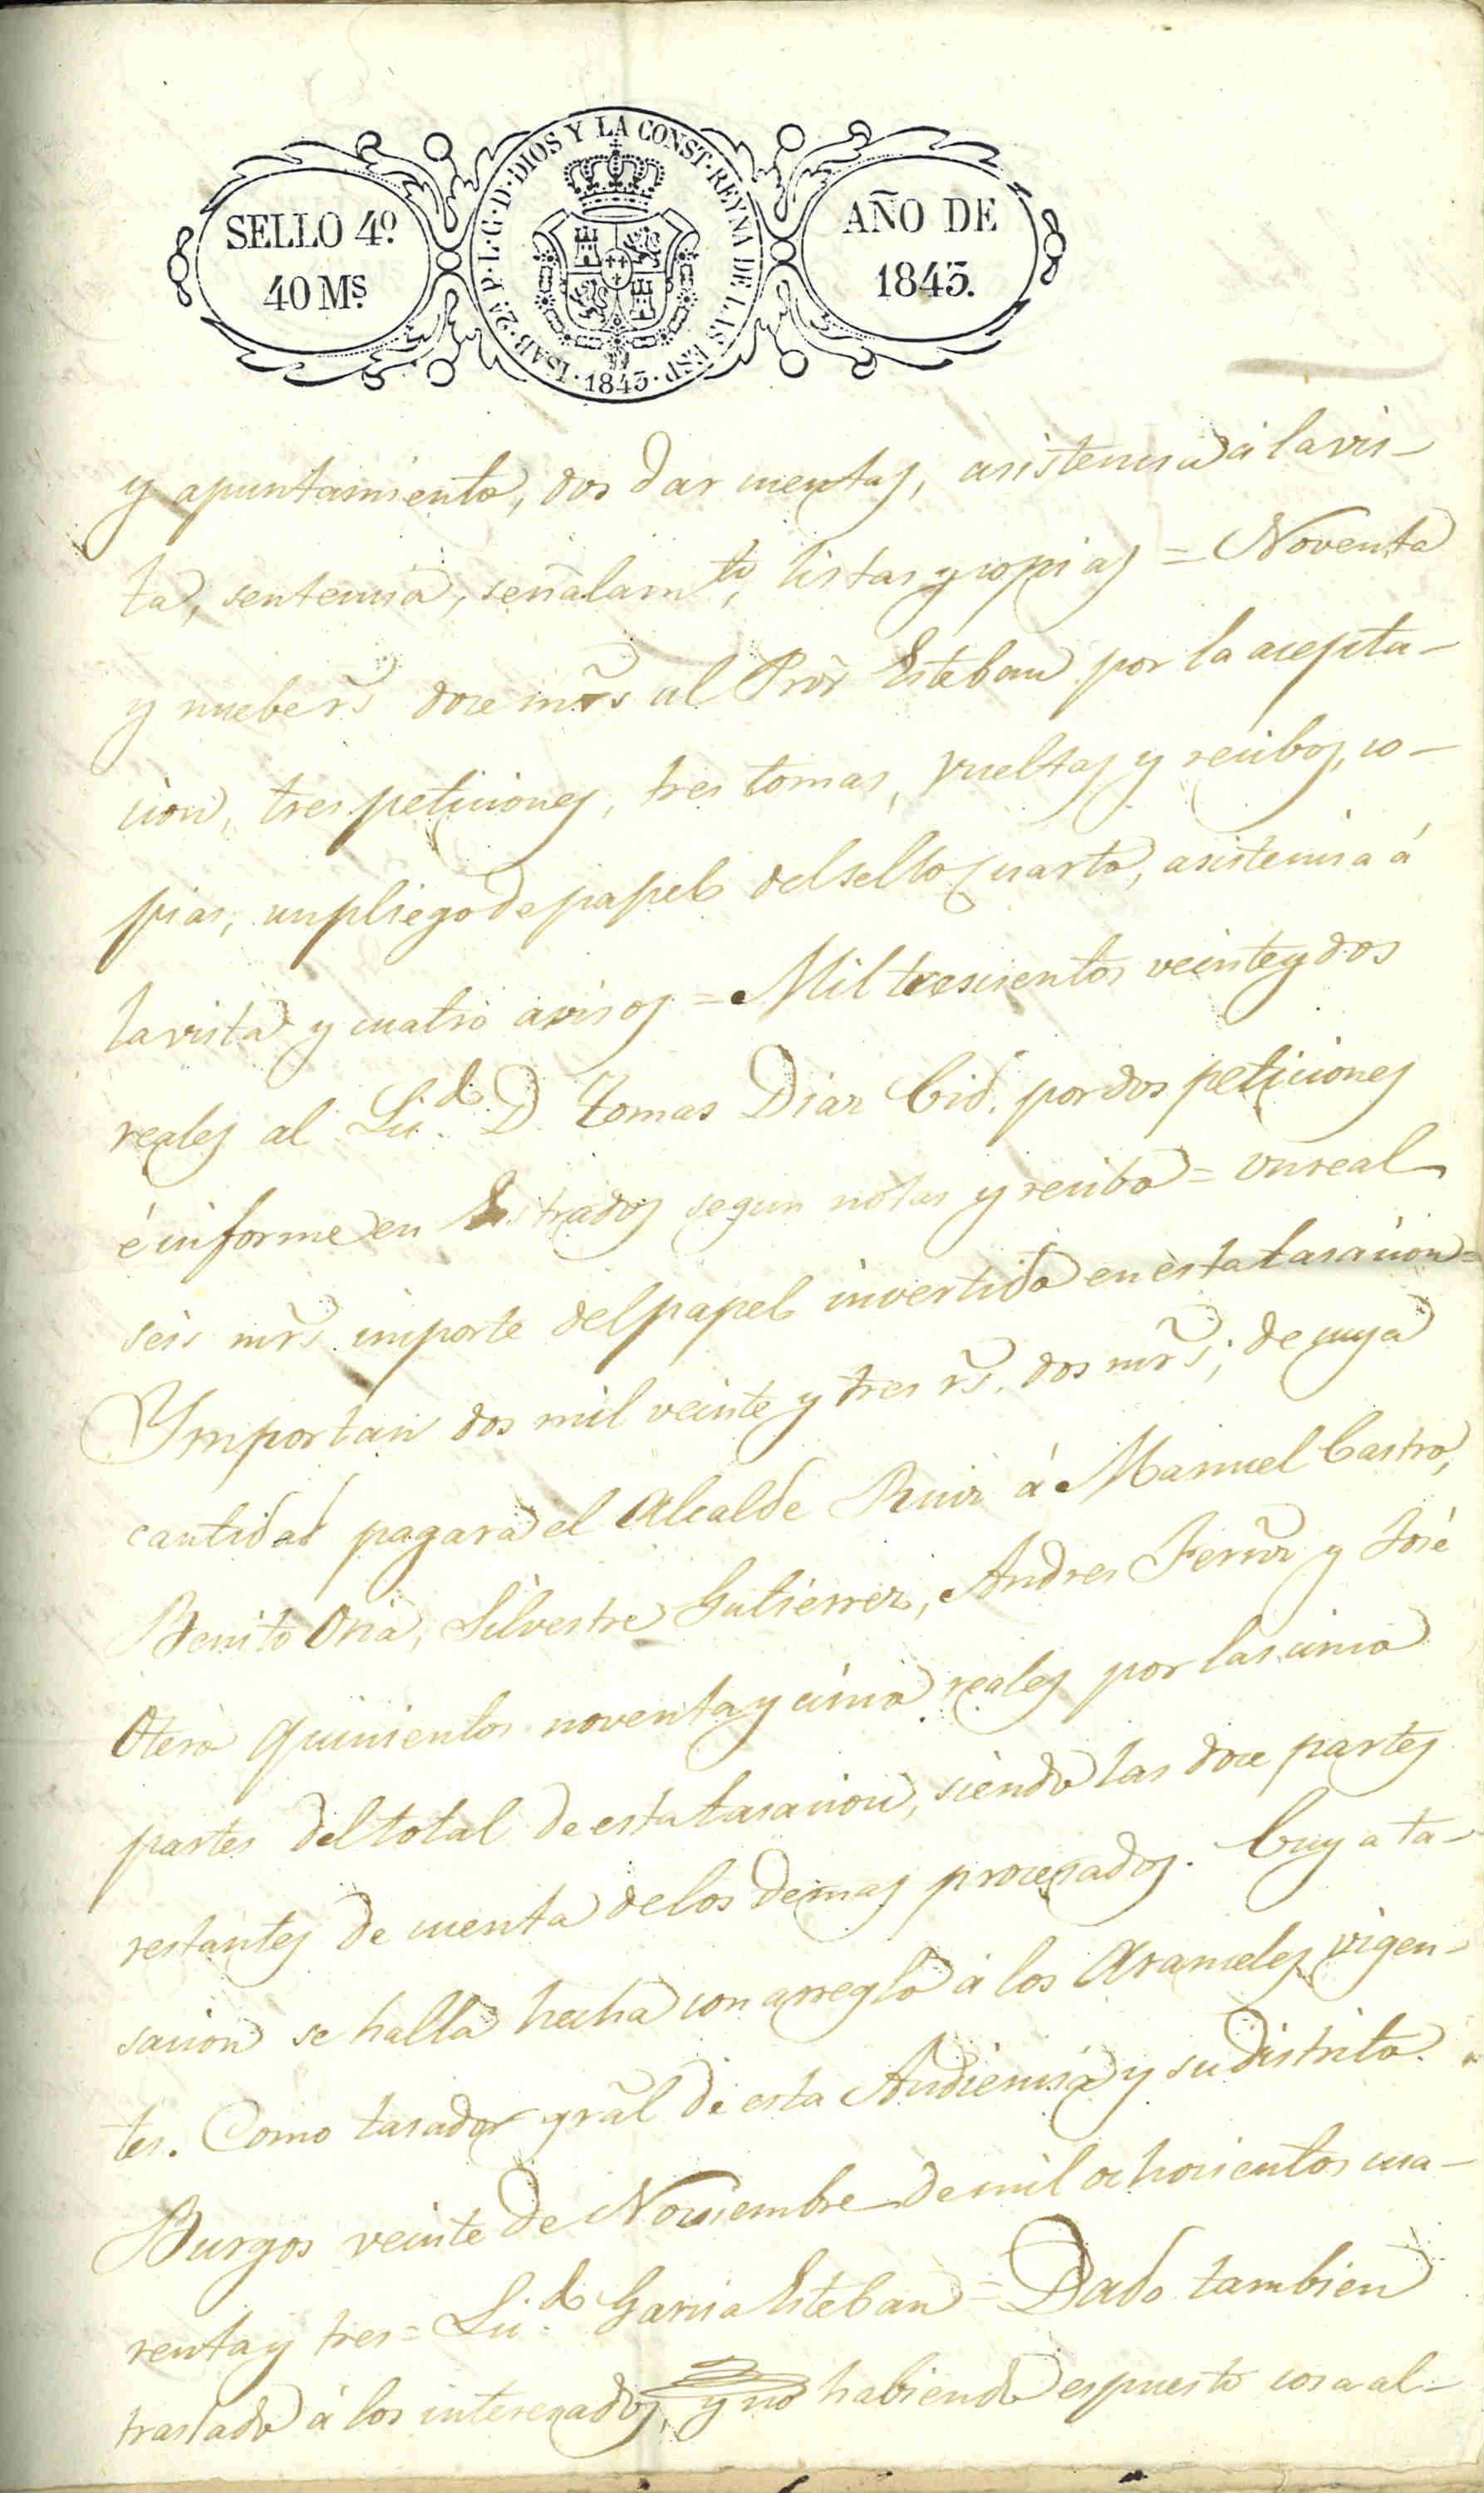 SELLO 4º
40 Ms.
ISAB. 2ª P. L. G. D. DIOS Y LA CONST. REYNA DE LAS ESP.
1843.
AÑO DE
1843.
y apuntamiento, dos dar cuentas, asistencia á la vis-
ta, sentencia, señalamto, listas y copias = Noventa
y nuebe rs doce mrs al Pror Esteban por la acepta-
cion, tres peticiones, tres tomas, vueltas y recibos, co-
pias, un pliego de papel del sello cuarto, asistencia á
la vista y cuatro avisos = Mil trescientos veinte y dos
reales al Licdo D. Tomas Diaz Cid. por dos peticiones
é informe en Estrados segun notas y recibo = un real
seis mrs importe del papel invertido en esta tasacion =
Ymportan dos mil veinte y tres rs. dos mrs; de cuya
cantidad pagará el Alcalde Ruiz á Manuel Castro,
Benito Oria, Silvestre Gutierrez, Andres Fernz y José
Otero quinientos noventa y cinco reales por las cinco
partes del total de esta tasacion, siendo las doce partes
restantes de cuenta de los demas procesados. Cuya ta-
sacion se halla hecha con arreglo á los Aranceles vigen-
tes. Como tasador gral de esta Audiencia y su distrito.
Burgos veinte de Noviembre de mil ochocientos cua-
renta y tres = Licdo Garcia Esteban = Dado tambien
traslado á los interesados, y no habiendo espuesto cosa al-